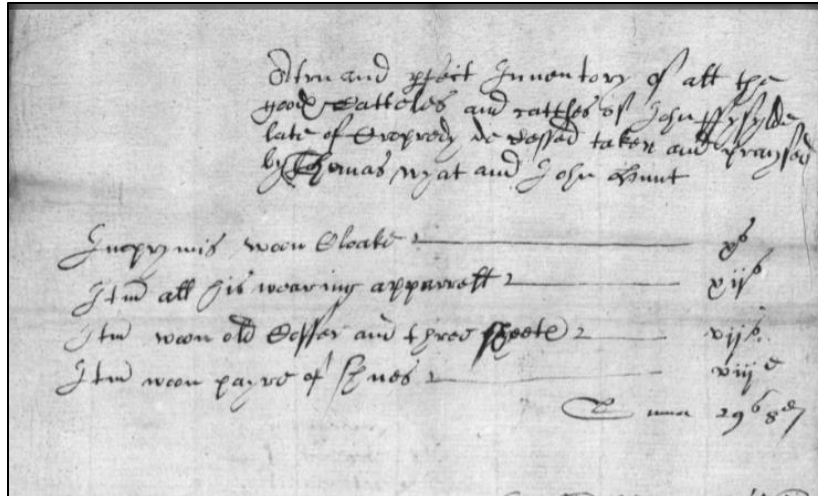 A trw and pfect Innventory of all the
goodes Cattelles and cattles of John ffyfylde
late of Cropredy de cessed taken and praysed
by Thomas wyat and John Hunt
Inprymis woon Cloake xs
Itm all his wearing apparrell xiis
Itm woon old Coffer and three sheete viis
Itm woon payre of shues viiid
Summa 29s 8d